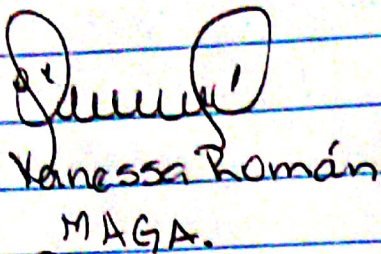 Vanessa Román
MAGA.